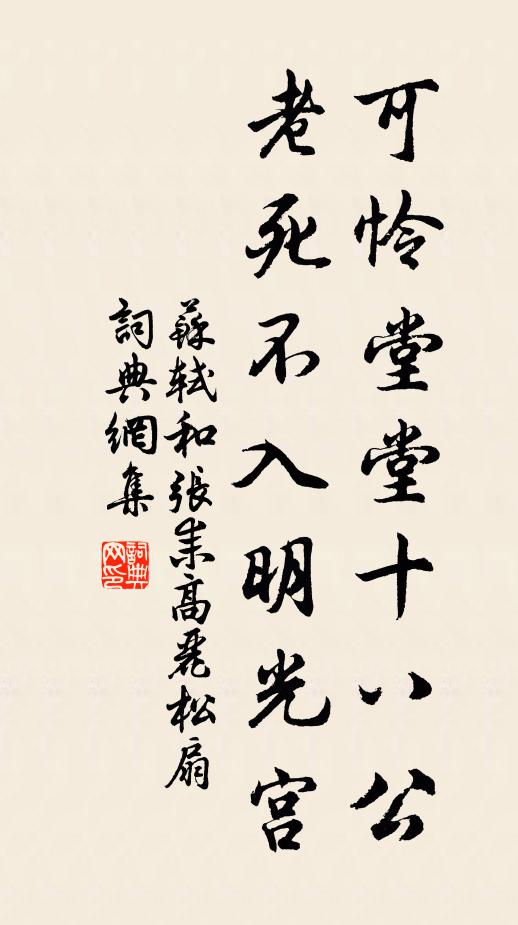 可怜堂堂十八公
老死不入明光宫
蘇軾和張耒高麗松扇
詞典網集
詞典
网印